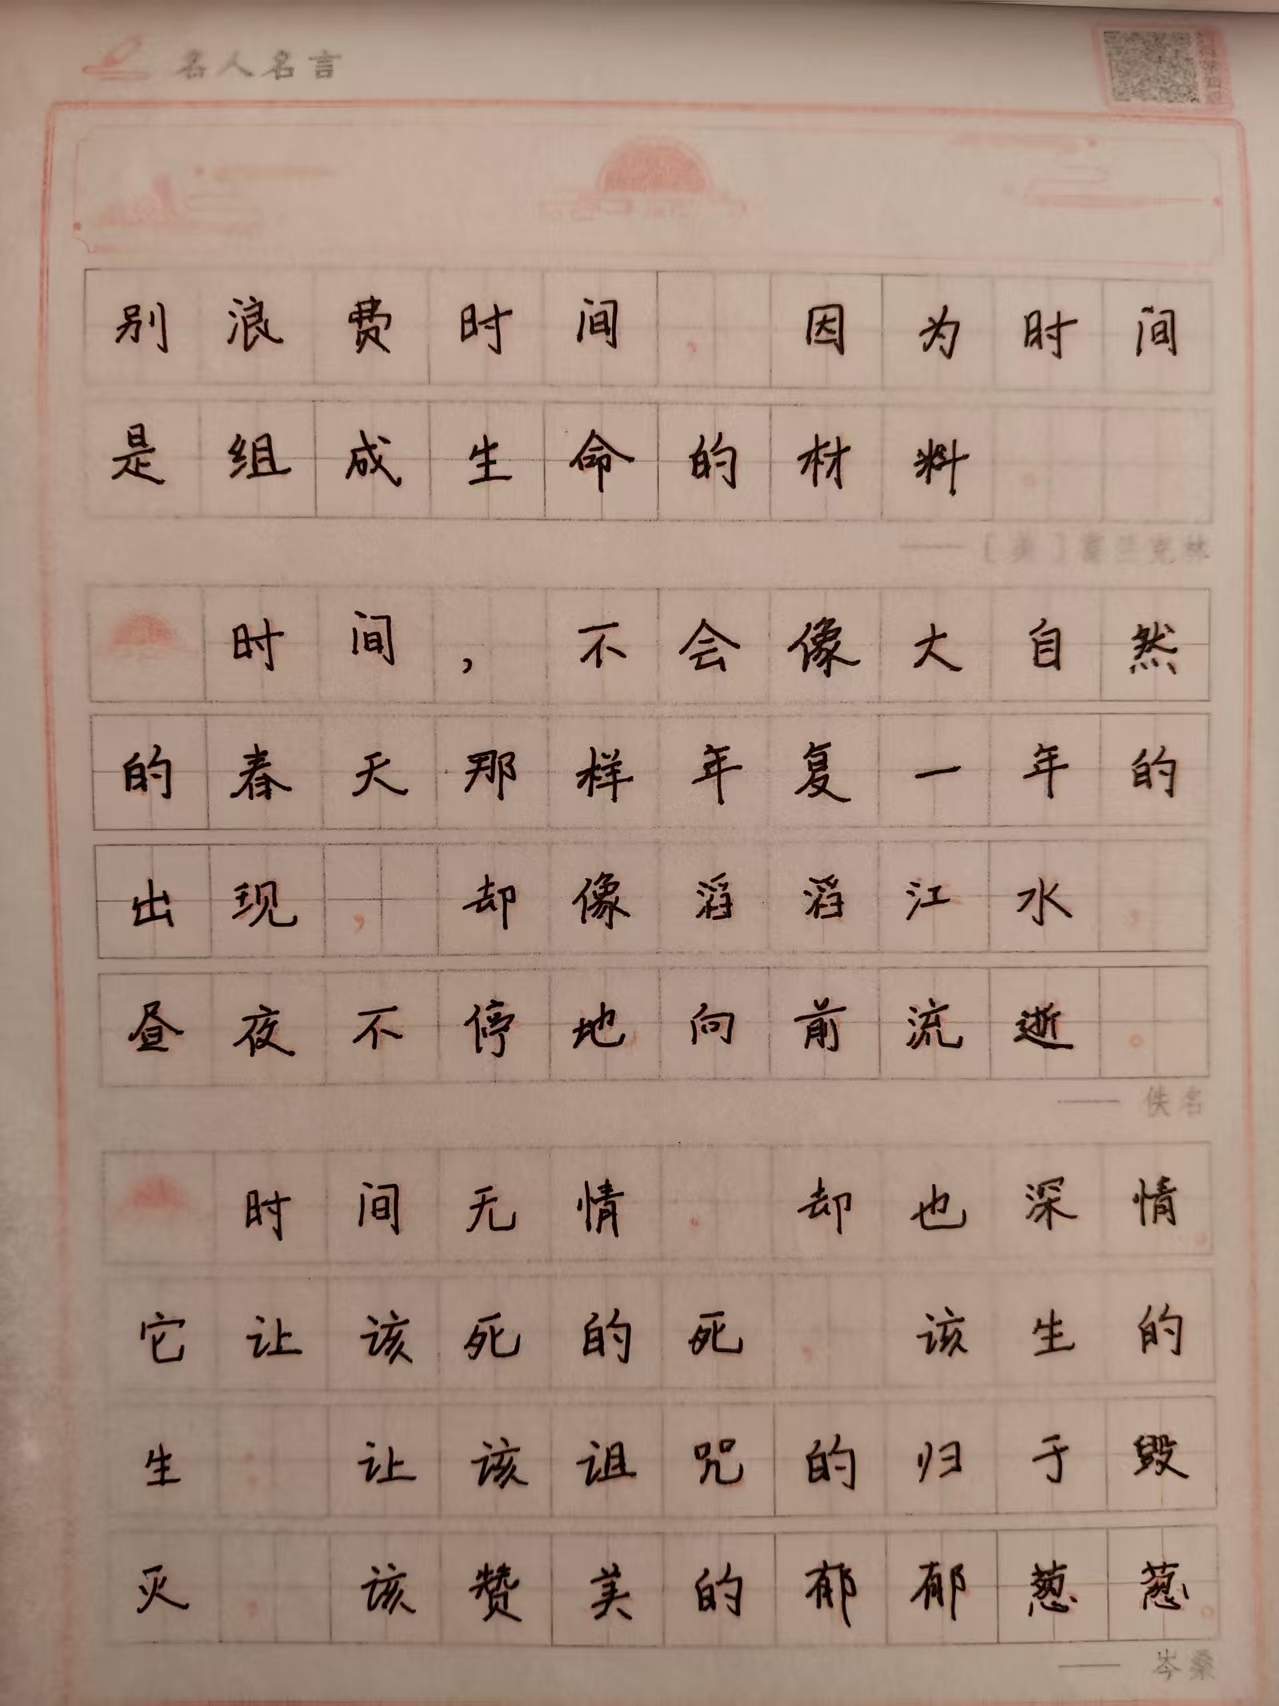 名人名言
别浪费时间，因为时间
是组成生命的材料。
——［美］富兰克林
时间，不会像大自然
的春天那样年复一年的
出现，却像滔滔江水，
昼夜不停地向前流逝。
—— 佚名
时间无情，却也深情。
它让该死的死，该生的
生；让该诅咒的归于毁
灭，该赞美的郁郁葱葱。
—— 岑桑